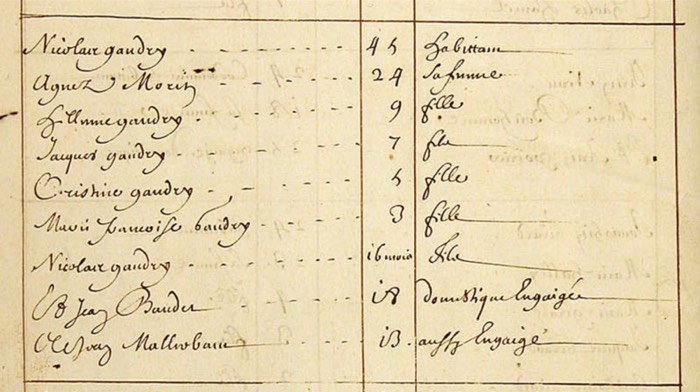 Nicolair gaudry 45 habittam
Agnez Morin 24 Sa femme
Hellenne gaudry 9 fille
Jacques gaudry 7 fils
Cristine gaudry 5 fille
Marie francoise Gaudry 3 fille
Nicolair gaudry 16 mois fils
Et Jean Baudet 18 domestique Engaigée
Et Jean 18 aussy Engaigé